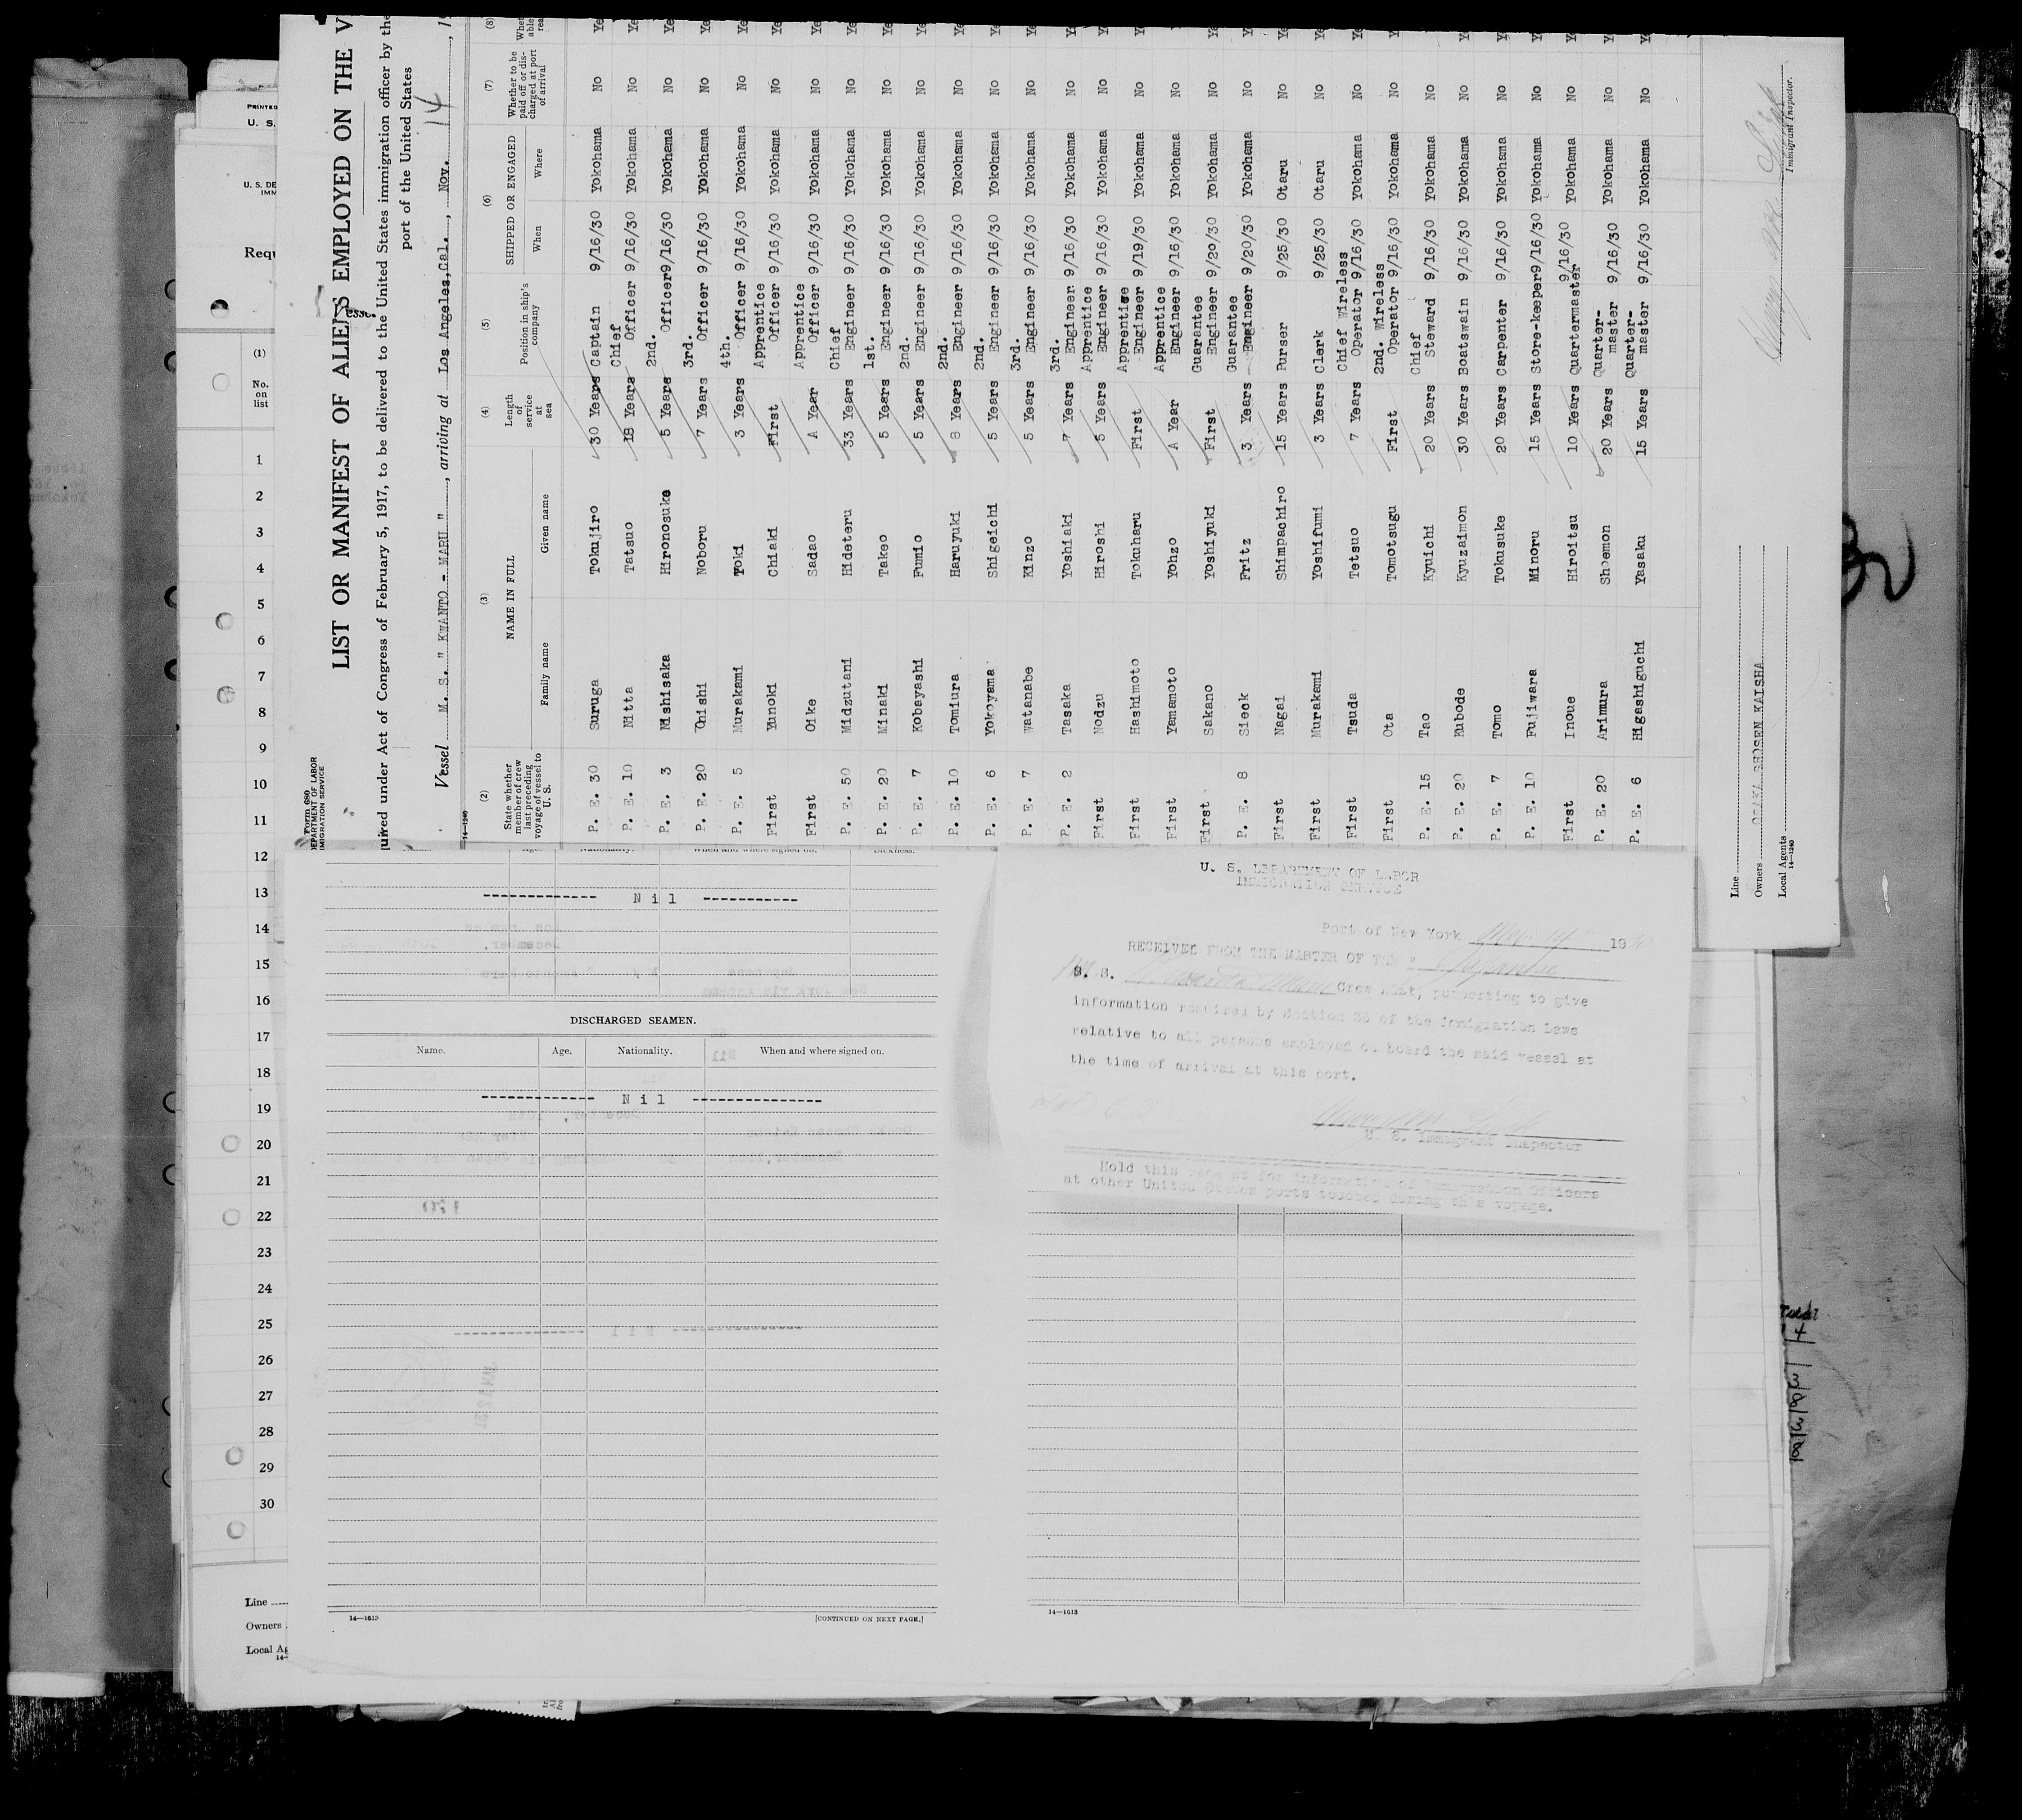 Form 680
DEPARTMENT OF LABOR
IMMIGRATION SERVICE
LIST OR MANIFEST OF ALIENS EMPLOYED ON THE V
quired under Act of Congress of February 5, 1917, to be delivered to the United States immigration officer by the
port of the United States
Vessel M. S. " KWANTO - MARU ", arriving at Los Angeles,Cal., Nov. 14, 19
14—1240
(2) State whether member of crew last preceding voyage of vessel to U. S. (3) NAME IN FULL Family name Given name (4) Length of service at sea (5) Position in ship's company (6) SHIPPED OR ENGAGED When Where (7) Whether to be paid off or discharged at port of arrival (8)
P. E. 30 Suruga Tokujiro 30 Years Captain 9/16/30 Yokohama No Ye
P. E. 10 Nitta Tatsuo 18 Years Chief Officer 9/16/30 Yokohama No Ye
P. E. 3 Nishisaka Hironosuke 5 Years 2nd. Officer 9/16/30 Yokohama No Ye
P. E. 20 Onishi Noboru 7 Years 3rd. Officer 9/16/30 Yokohama No Ye
P. E. 5 Murakami Toki 3 Years 4th. Officer 9/16/30 Yokohama No Ye
First Yunoki Chiaki First Apprentice Officer 9/16/30 Yokohama No Ye
First Oike Sadao A Year Apprentice Officer 9/16/30 Yokohama No Ye
P. E. 50 Midzutani Hideteru 33 Years Chief Engineer 9/16/30 Yokohama No Ye
P. E. 20 Minaki Takeo 5 Years 1st. Engineer 9/16/30 Yokohama No Ye
P. E. 7 Kobayashi Fumio 5 Years 2nd. Engineer 9/16/30 Yokohama No Ye
P. E. 10 Tomiura Haruyuki 8 Years 2nd. Engineer 9/16/30 Yokohama No Ye
P. E. 6 Yokoyama Shigeichi 5 Years 2nd. Engineer 9/16/30 Yokohama No Ye
P. E. 7 Watanabe Kinzo 5 Years 3rd. Engineer 9/16/30 Yokohama No Ye
P. E. 2 Tasaka Yoshiaki 7 Years 3rd. Engineer 9/16/30 Yokohama No Ye
First Nodzu Hiroshi 5 Years Apprentice Engineer 9/16/30 Yokohama No Ye
First Hashimoto Tokuharu First Apprentice Engineer 9/19/30 Yokohama No Ye
First Yamamoto Yohzo A Year Apprentice Engineer 9/16/30 Yokohama No
First Sakano Yoshiyuki First Guarantee Engineer 9/20/30 Yokohama No Ye
P. E. 8 Sieck Fritz 3 Years Guarantee Engineer 9/20/30 Yokohama No Ye
First Nagai Shimpachiro 15 Years Purser 9/25/30 Otaru No Ye
First Murakami Yoshifumi 3 Years Clerk 9/25/30 Otaru No Ye
First Tsuda Tetsuo 7 Years Chief Wireless Operator 9/16/30 Yokohama No Ye
First Ota Tomotsugu First 2nd. Wireless Operator 9/16/30 Yokohama No Ye
P. E. 15 Tao Kyuichi 20 Years Chief Steward 9/16/30 Yokohama No
P. E. 20 Kubode Kyuzaimon 30 Years Boatswain 9/16/30 Yokohama No Ye
P. E. 7 Tomo Tokusuke 20 Years Carpenter 9/16/30 Yokohama No Ye
P. E. 10 Fujiwara Minoru 15 Years Store-keeper 9/16/30 Yokohama No Ye
First Inoue Hiroitsu 10 Years Quartermaster 9/16/30 Yokohama No Ye
P. E. 20 Arimura Shoemon 20 Years Quarter-master 9/16/30 Yokohama No Ye
P. E. 6 Higashiguchi Yasaku 15 Years Quarter-master 9/16/30 Yokohama No Ye
Line
Owners OSAKA SHOSEN KAISHA
Local Agents
14—1240
Immigrant Inspector.
PRINTED
U. S.
U. S. DE
IMM
Requ
(1)
No. on list
1
2
3
4
5
6
7
8
9
10
11
12
13
14
15
16
17
18
19
20
21
22
23
24
25
26
27
28
29
30
Line
Owners
Local Ag
14—
Nationality. When and where signed on. Sickness.
Nil
DISCHARGED SEAMEN.
Name. Age. Nationality. When and where signed on.
Nil
14—1613
[CONTINUED ON NEXT PAGE.]
U. S. DEPARTMENT OF LABOR
IMMIGRATION SERVICE
Port of New York 1930
RECEIVED FROM THE MASTER OF THE " Japanese
S. S. Crew List, purporting to give
information required by Section 36 of the Immigration Laws
relative to all persons employed on board the said vessel at
the time of arrival at this port.
U. S. Immigrant Inspector
Hold this receipt for information of Immigration Officers
at other United States ports touched during this voyage.
14—1613
Total